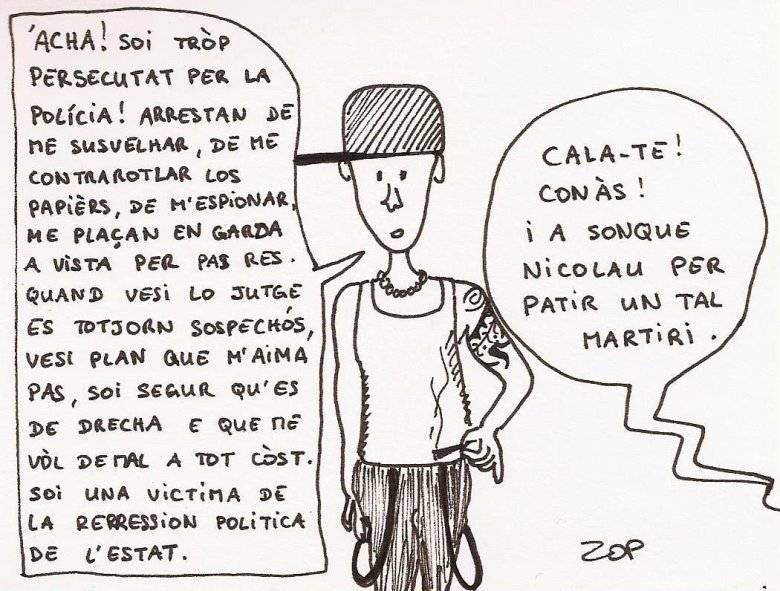 'ACHA! SOI TRÒP
PERSECUTAT PER LA
POLÍCIA! ARRESTAN DE
ME SUSVELHAR, DE ME
CONTRAROTLAR LOS
PAPIÈRS, DE M'ESPIONAR,
ME PLAÇAN EN GARDA
A VISTA PER PAS RES.
QUAND VESI LO JUTGE
ES TOTJORN SOSPECHÓS,
VESI PLAN QUE M'AIMA
PAS, SOI SEGUR QU'ES
DE DRECHA E QUE ME
VÒL DE MAL A TOT CÒST.
SOI UNA VICTIMA DE
LA REPRESSION POLITICA
DE L'ESTAT.
CALA-TE!
CONÀS!
I A SONQUE
NICOLAU PER
PATIR UN TAL
MARTIRI.
ZOP